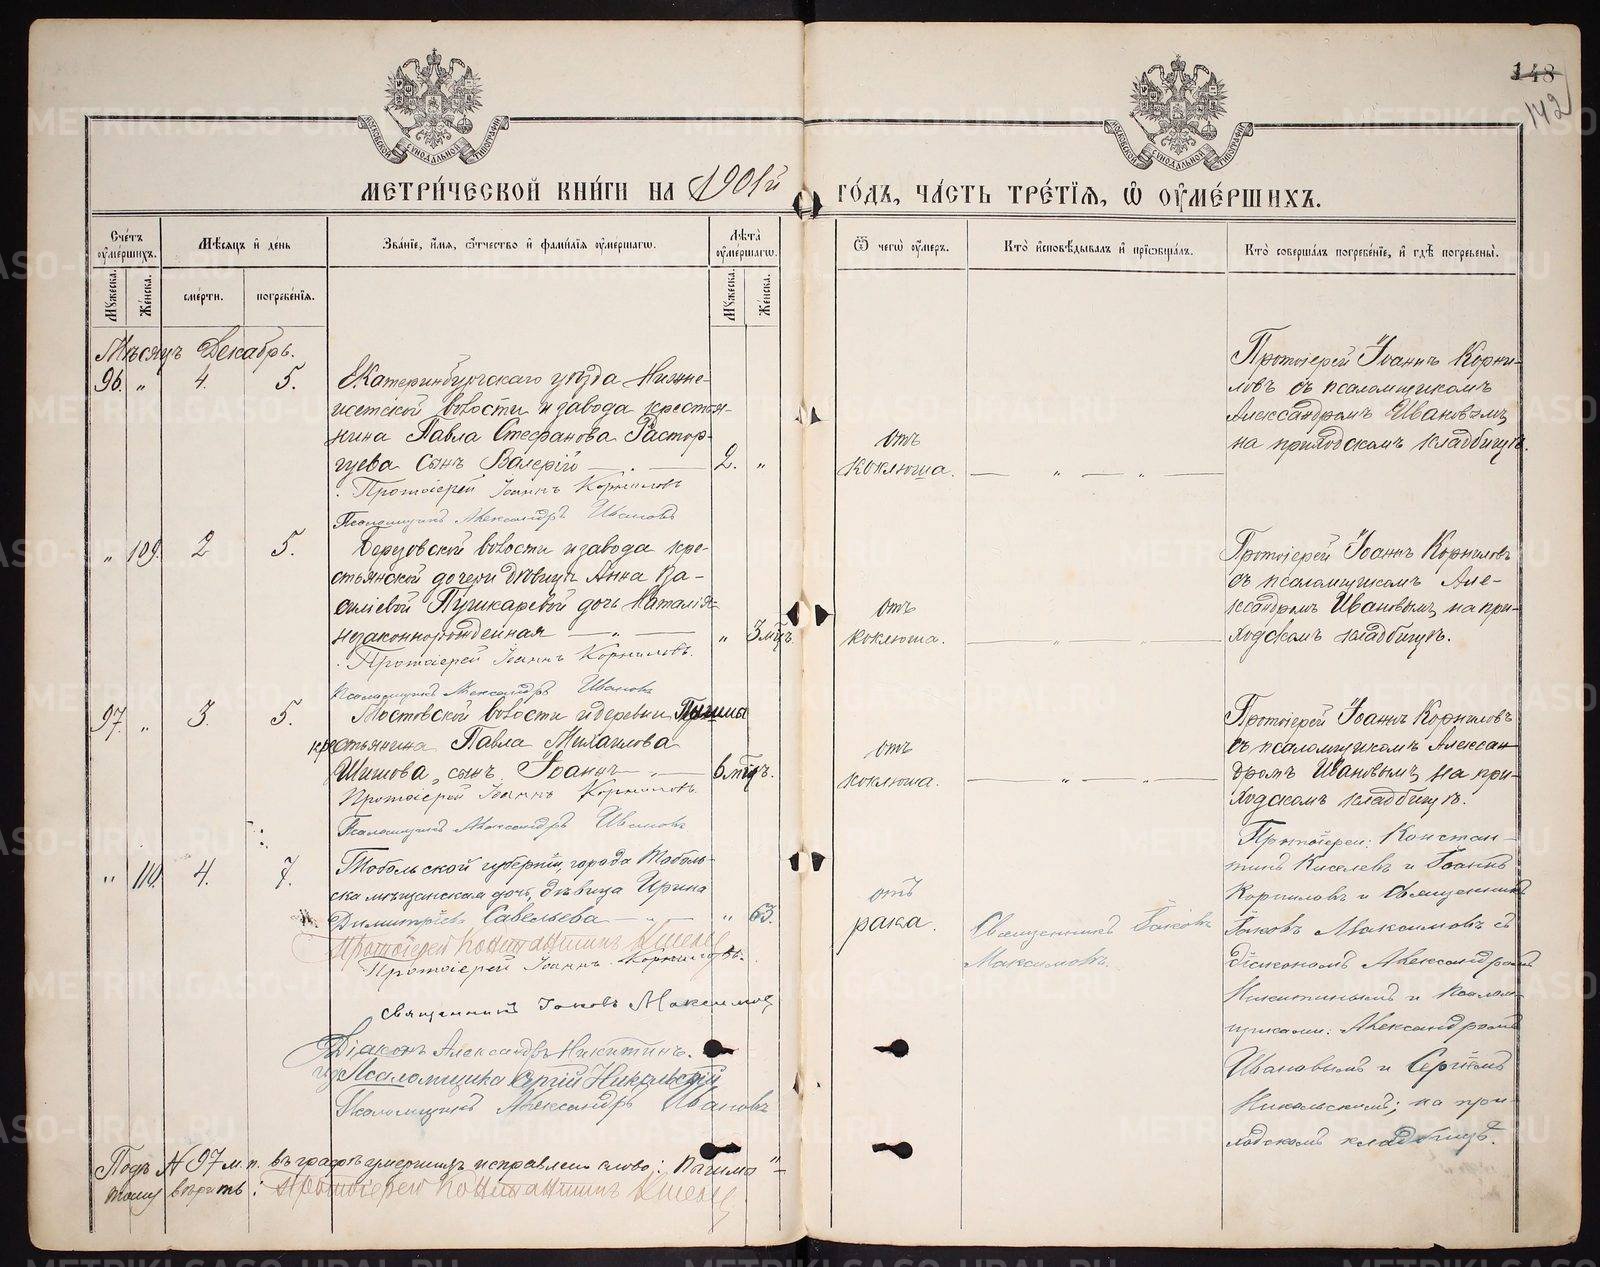 148
142
МЕТРИ́ЧЕСКОЙ КНИ́ГИ НА 1901й ГО́ДЪ, ЧА́СТЬ ТРЕ́ТЇѦ, Ѡ ОУ҆МЕ́РШИХЪ.
Сче́тъ оу҆ме́ршихъ.
Мѣ́сяцъ и҆ де́нь
Зва́нїе, и҆́мя, ѻ҆́тчество и҆ фами́лїя оу҆ме́ршагѡ.
Лѣ́та оу҆ме́ршагѡ.
Ѿ чегѡ̀ оу҆́меръ.
Кто̀ и҆сповѣ́дывалъ и҆ прїѡбща́лъ.
Кто̀ соверша́лъ погребе́нїе, и҆ гдѣ̀ погребены̀.
Мꙋ́жеска.
Же́нска.
сме́рти.
погребе́нїя.
Мꙋ́жеска.
Же́нска.
Мѣсяцъ Декабрь.
96. " 4. 5.
Екатеринбургскаго уѣзда Нижне-
исетской волости и завода крестья-
нина Павла Стефанова Растор-
гуева сынъ Валерій 2. "
Протоіерей Іоаннъ Корниловъ
Псаломщикъ Александръ Ивановъ
отъ
коклюша.
Протоіерей Іоаннъ Корни-
ловъ съ псаломщикомъ
Александромъ Ивановымъ
на приходскомъ кладбищѣ.
" 109. 2 5.
Березовской волости и завода кре-
стьянской дочери дѣвицы Анна Ва-
силіевой Пушкаревой дочь Наталія
незаконнорожденная " 3 мѣц.
Протоіерей Іоаннъ Корниловъ.
Псаломщикъ Александръ Ивановъ
отъ
коклюша.
Протоіерей Іоаннъ Корниловъ
съ псаломщикомъ Але-
ксандромъ Ивановымъ, на при-
ходскомъ кладбищѣ.
97. " 3. 5.
Мостовской волости и деревни
крестьянина Павла Михаилова
Шишова, сынъ Іоаннъ 6 мѣц.
Протоіерей Іоаннъ Корниловъ.
Псаломщикъ Александръ Ивановъ
отъ
коклюша.
Протоіерей Іоаннъ Корниловъ
съ псаломщикомъ Алексан
дромъ Ивановымъ, на при-
ходскомъ кладбищѣ.
" 110. 4. 7.
Тобольской губерніи, города Тоболь-
ска мѣщанская дочь, дѣвица Ирина
Димитріев. Савельева " 63.
Протоіерей Константинъ Киселев
Протоіерей Іоаннъ Корниловъ.
Священникъ Іаковъ Максимов
Діаконъ Александръ Никитинъ.
Псаломщика Сергій Никольскій
Псаломщикъ Александръ Ивановъ
отъ
рака.
Священникъ Іаковъ
Максимовъ.
Протоіереи: Констан-
тинъ Киселевъ и Іоаннъ
Корниловъ и Священникъ
Іаковъ Максимовъ съ
діакономъ Александромъ
Никитинымъ и псалом-
щиками: Александромъ
Ивановымъ и Сергіемъ
Никольскимъ; на при-
ходскомъ кладбищѣ.
Подъ № 97 м. п. въ графѣ умершихъ исправлено слово:
тому вѣрить: Протоіерей Константинъ Киселев